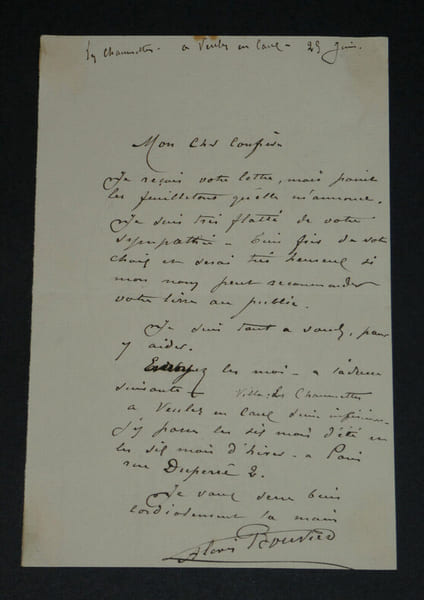 Les Chaumettes - a Veules en Caux - 25 Juin.
Mon Cher Confrère
Je reçois votre lettre, mais point
les feuilletons qu'elle m'annonce.
Je suis très flatté de votre
sympathie -
choix et serai très heureux si
mon nom peut recommander
votre livre au public.
Je suis tout a vous, pour
y aider.
Envoyez les moi - a l'adresse
suivante - Villa les Chaumettes
a Veules en Caux Seine inférieure
j'y passe les six mois d'été et
les six mois d'hiver - a Paris
rue Duperré 2.
Je vous serre bien
cordialement la main
Alexis Bouvier